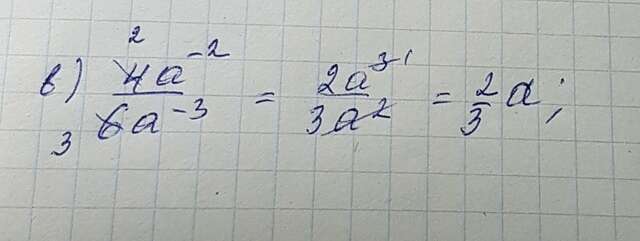 в) 4a⁻² / 6a⁻³ = 2a³ / 3a² = 2/3 a;